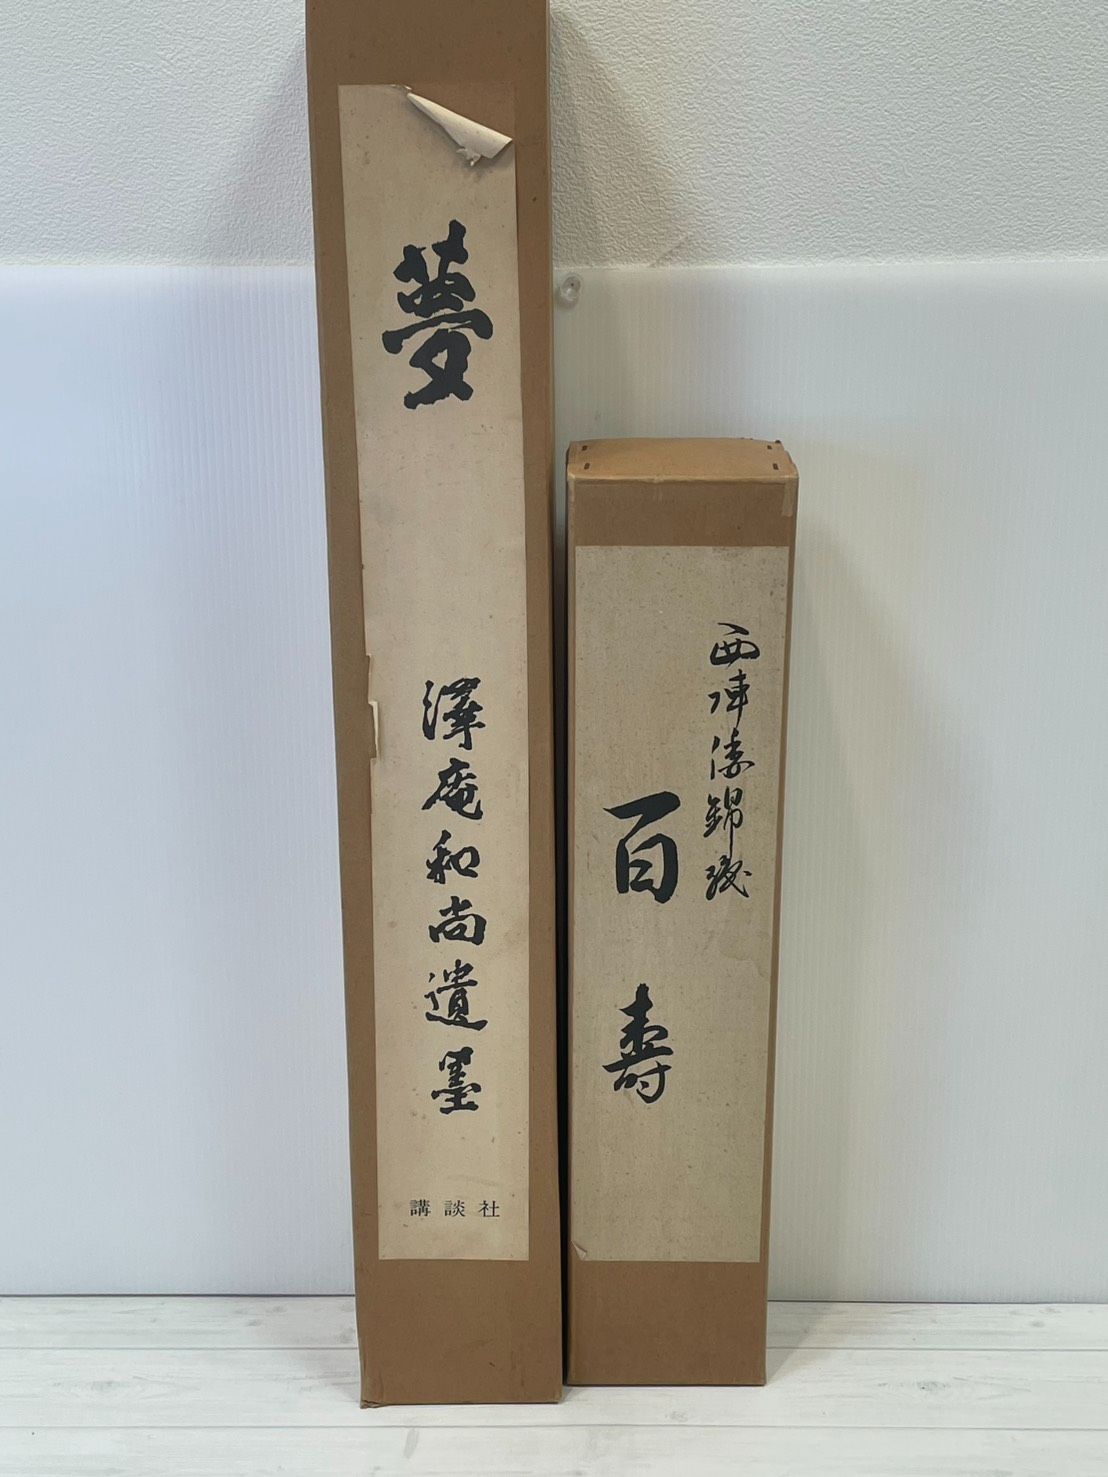 夢
澤庵和尚遺墨
講談社
西陣倭錦織
百壽